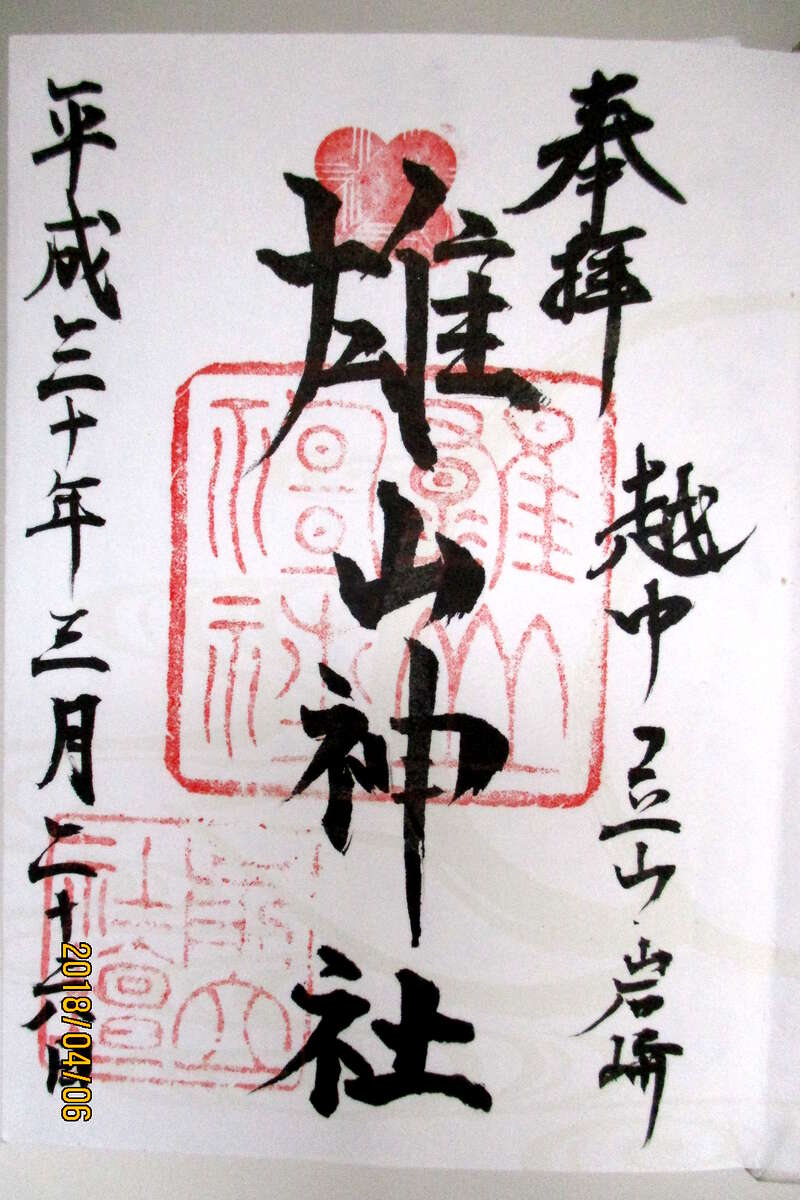 奉拝
越中立山岩峅
雄山神社
雄山神社
前立社壇
平成三十年三月二十六日
2018/04/06